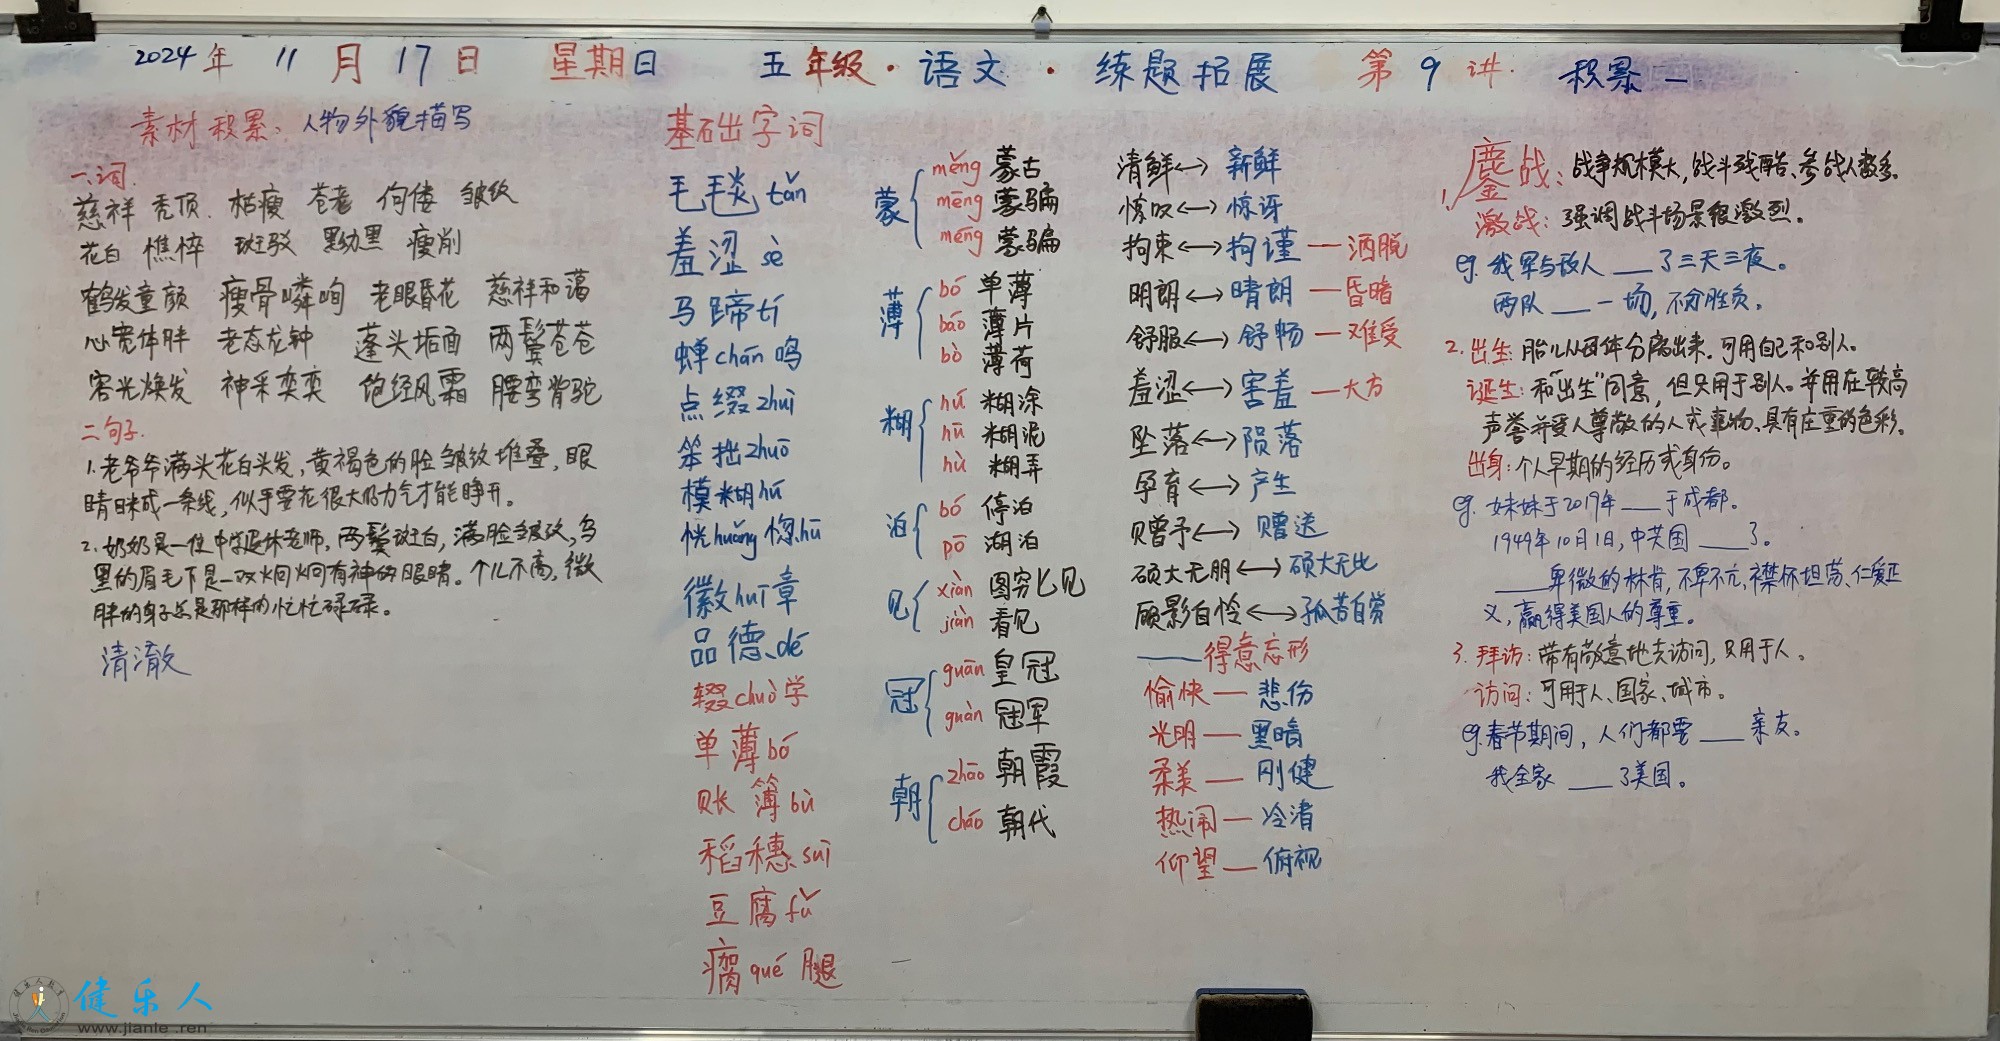 2024年 11月17日 星期日 五年级·语文·练题拓展 第9讲 积累一
素材积累：人物外貌描写
一、词.
慈祥 秃顶 枯瘦 苍老 佝偻 皱纹
花白 憔悴 斑驳 黝黑 瘦削
鹤发童颜 瘦骨嶙峋 老眼昏花 慈祥和蔼
心宽体胖 老态龙钟 蓬头垢面 两鬓苍苍
容光焕发 神采奕奕 饱经风霜 腰弯背驼
二句子.
1.老爷爷满头花白头发,黄褐色的脸皱纹堆叠,眼
睛眯成一条线,似乎要花很大的力气才能睁开。
2.奶奶是一位中学退休老师,两鬓斑白,满脸皱纹,乌
黑的眉毛下是一双炯炯有神的眼睛。个儿不高,微
胖的身子总是那样的忙忙碌碌。
清澈
基础字词
毛毛毯tǎn
羞涩sè
马蹄tí
蝉chán鸣
点缀zhuì
笨拙zhuō
模糊hú
恍huǎng惚hū
徽huī章
品德dé
辍chuò学
单薄bó
账簿bù
稻穗suì
豆腐fǔ
瘸qué腿
蒙
měng 蒙古
mēng 蒙骗
mēng 蒙骗
薄
bó 单薄
báo 薄片
bò 薄荷
糊
hú 糊涂
hū 糊泥
hù 糊弄
泊
bó 停泊
pō 湖泊
见
xiàn 图穷匕见
jiàn 看见
冠
guān 皇冠
guàn 冠军
朝
zhāo 朝霞
cháo 朝代
清鲜↔新鲜
惊叹↔惊讶
拘束↔拘谨—洒脱
明朗↔晴朗—昏暗
舒服↔舒畅—难受
羞涩↔害羞—大方
坠落↔陨落
孕育↔产生
赠予↔赠送
硕大无朋↔硕大无比
顾影自怜↔孤芳自赏
——得意忘形
愉快—悲伤
光明—黑暗
柔美—刚健
热闹—冷清
仰望—俯视
1、鏖战：战争规模大,战斗残酷、参战人数多。
激战：强调战斗场景很激烈。
eg.我军与敌人___了三天三夜。
两队___一场,不分胜负。
2.出生：胎儿从母体分离出来.可用自己和别人。
诞生：和“出生”同意,但只用于别人。并用在较高
声誉并受人尊敬的人或事物、具有庄重的色彩。
出身：个人早期的经历或身份。
eg.妹妹于2019年___于成都。
1949年10月1日,中共国___了。
___卑微的林肯,不卑不亢、襟怀坦荡、仁爱正
义,赢得美国人的尊重。
3.拜访：带有敬意地去访问,只用于人。
访问：可用于人、国家、城市。
eg.春节期间,人们都要___亲友。
我全家___了美国。
健乐人
www.jianle.ren